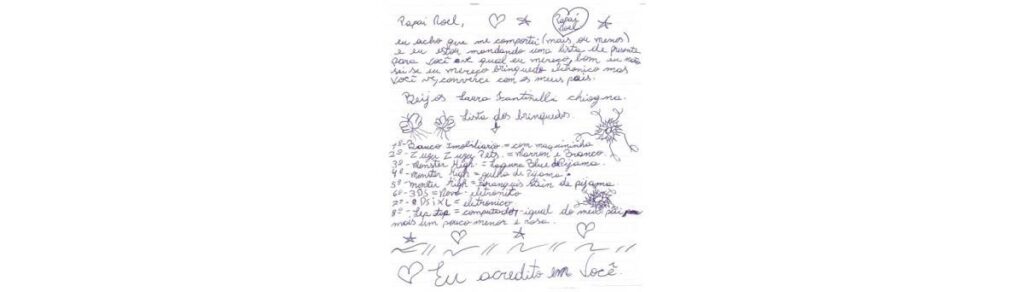 Papai Noel,
Papai Noel
eu acho que me comportei (mais ou menos)
e eu estou mandando uma lista de presente
para você ver qual eu mereço, bom eu não
sei se eu mereço brinquedo eletronico mas
você ve, convence com os meus pais.
Beijos Larra
Lista dos brinquedos.
1º- Banco Imobiliario = com maquininha
2º- Zuzu Zuzu Pets = Marrom e Branco
3º- Monster High = Laguna Blue de Pijama
4º- monster High = de Pijama
5º- monter High = de pijama
6º- 3DS = Novo eletronico
7º- DSi XL = eletronico
8º- Lep top = computador igual do meu pai
mais um pouco menor e rosa.
Eu acredito em Você.